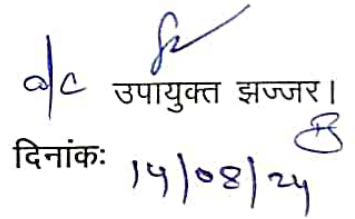 o/c उपायुक्त झज्जर।
दिनांकः 14/08/24